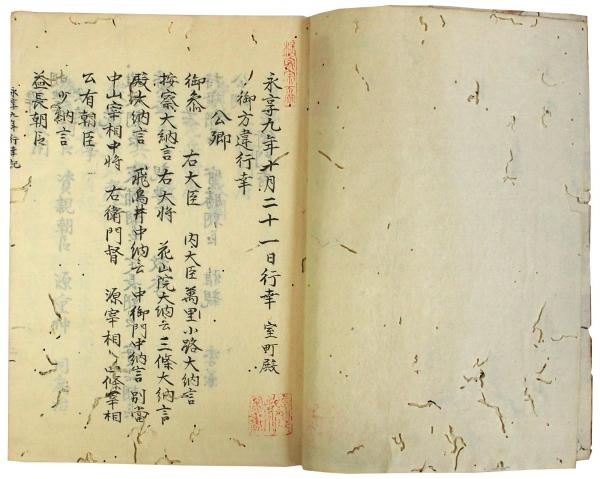 永享九年十月二十一日行幸 室町殿
御方違行幸
公卿
御参 右大臣 内大臣 萬里小路大納言
按察大納言 右大将 花山院大納言 三條大納言
殿大納言 飛鳥井中納言 中御門中納言 別當
中山宰相中将 右衛門督 源宰相 宰相
公有朝臣
少納言
益長朝臣
永享九年行幸記